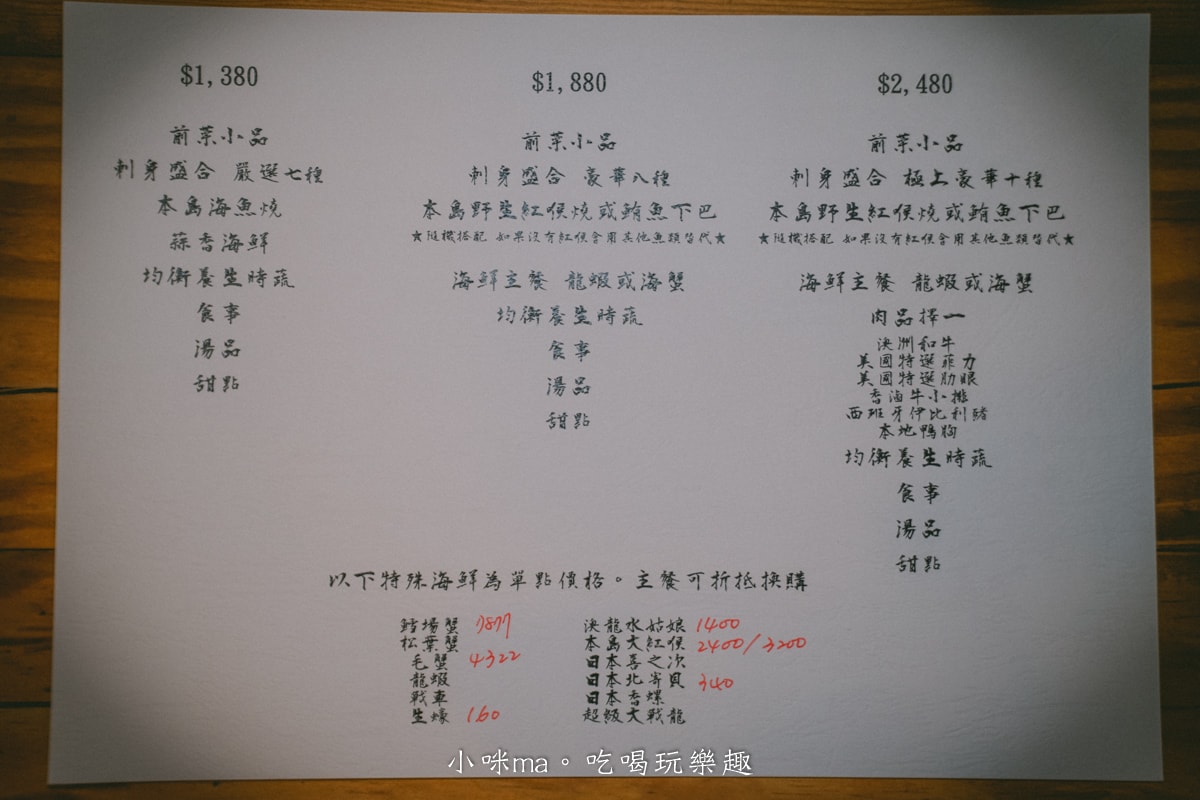 $1,380
前菜小品
刺身盛合 嚴選七種
本島海魚燒
蒜香海鮮
均衡養生時蔬
食事
湯品
甜點
$1,880
前菜小品
刺身盛合 豪華八種
本島野生紅喉燒或鮪魚下巴
★隨機搭配 如果沒有紅喉會用其他魚類替代★
海鮮主餐 龍蝦或海蟹
均衡養生時蔬
食事
湯品
甜點
$2,480
前菜小品
刺身盛合 極上豪華十種
本島野生紅喉燒或鮪魚下巴
★隨機搭配 如果沒有紅喉會用其他魚類替代★
海鮮主餐 龍蝦或海蟹
肉品擇一
澳洲和牛
美國特選菲力
美國特選肋眼
香滷牛小排
西班牙伊比利豬
本地鴨胸
均衡養生時蔬
食事
湯品
甜點
以下特殊海鮮為單點價格。主餐可折抵換購
鱈場蟹 7877
松葉蟹
毛蟹 4322
龍蝦
戰車
生蠔 160
澳龍水姑娘 1400
本島大紅喉 2400/3200
日本喜之次
日本北寄貝 340
日本香螺
超級大戰龍
小咪ma。吃喝玩樂趣